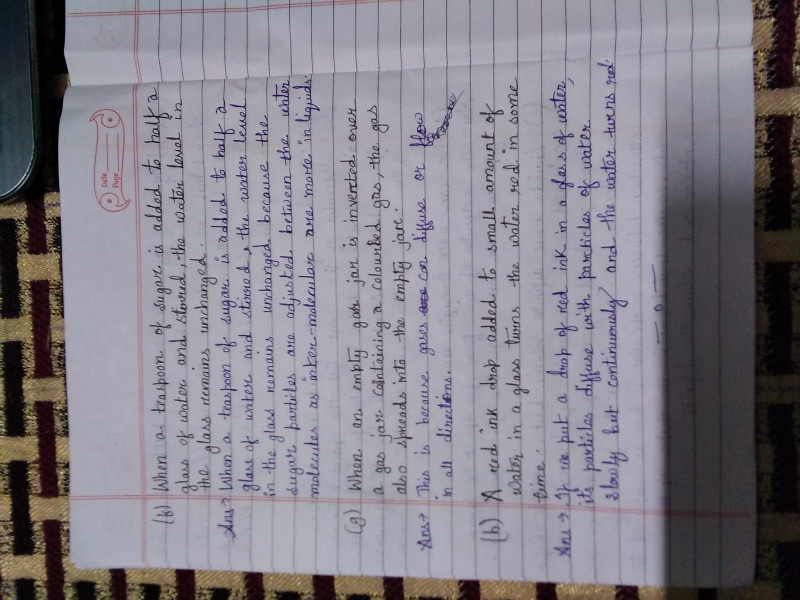 Date
Page
(f) When a teaspoon of sugar is added to half a
glass of water and stirred, the water level in
the glass remains unchanged.
Ans → When a teaspoon of sugar is added to half a
glass of water and stirred, the water level
in the glass remains unchanged because the
sugar particles are adjusted between the water
molecules as inter-molecular are more in liquids.
(g) When an empty gas jar is inverted over
a gas jar containing a coloured gas, the gas
also spreads into the empty jar.
Ans → This is because gases can diffuse or flow
in all directions.
(h) A red ink drop added to small amount of
water in a glass turns the water red in some
time.
Ans → If we put a drop of red ink in a glass of water,
its particles diffuse with particles of water
slowly but continuously and the water turns red.
— o —